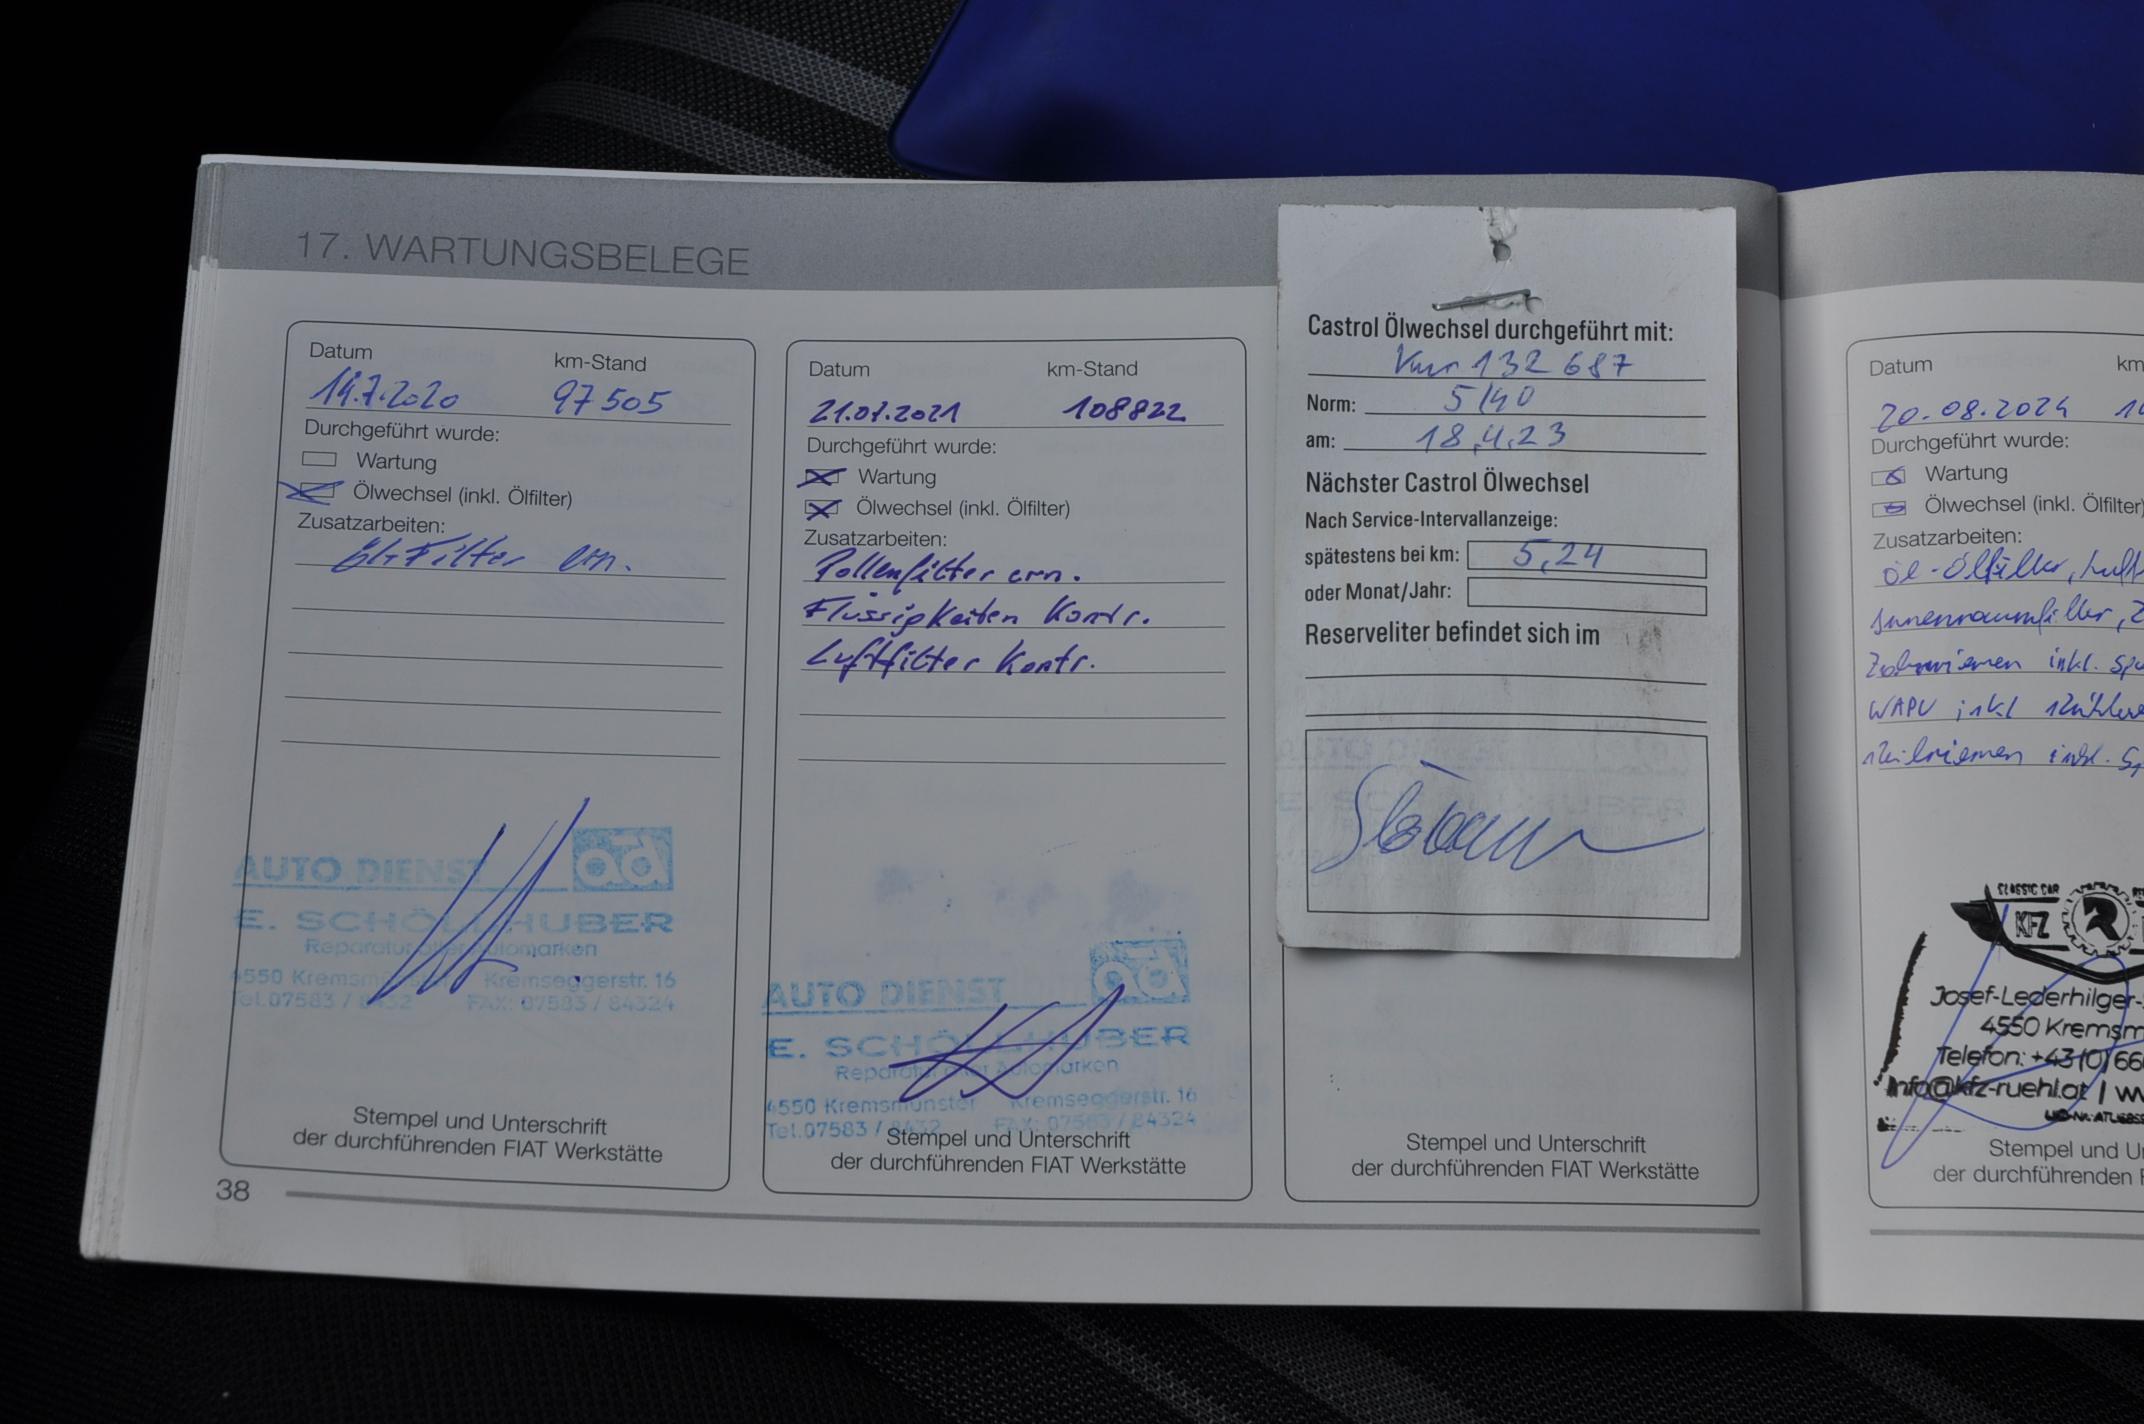 17. WARTUNGSBELEGE
Datum km-Stand
14.7.2020 97505
Durchgeführt wurde:
Wartung
Ölwechsel (inkl. Ölfilter)
Zusatzarbeiten:
Filter ern.
AUTO DIENST ad
E. SCHÖLLHUBER
Reparatur aller Automarken
4550 Kremsmünster Kremseggerstr. 16
Tel.07583 / 8432 FAX: 07583 / 84324
Stempel und Unterschrift
der durchführenden FIAT Werkstätte
38
Datum km-Stand
21.07.2021 108822
Durchgeführt wurde:
Wartung
Ölwechsel (inkl. Ölfilter)
Zusatzarbeiten:
Pollenfilter ern.
Flüssigkeiten Kontr.
Luftfilter Kontr.
AUTO DIENST ad
E. SCHÖLLHUBER
Reparatur aller Automarken
4550 Kremsmünster Kremseggerstr. 16
Tel.07583 / 8432 FAX: 07583 / 84324
Stempel und Unterschrift
der durchführenden FIAT Werkstätte
Castrol Ölwechsel durchgeführt mit:
132 687
Norm: 5/40
am: 18.4.23
Nächster Castrol Ölwechsel
Nach Service-Intervallanzeige:
spätestens bei km: 5,24
oder Monat/Jahr:
Reserveliter befindet sich im
Stempel und Unterschrift
der durchführenden FIAT Werkstätte
Datum km
20.08.2024
Durchgeführt wurde:
Wartung
Ölwechsel (inkl. Ölfilter)
Zusatzarbeiten:
Öl-Ölfilter, Luft
Innenraumfilter, Z
Zahnriemen inkl. Sp
WAPU inkl
Keilriemen inkl. Sp
CLASSIC CAR
KFZ R
Josef-Lederhilger-
4550 Kremsm
Telefon: +43(0)66
info@kfz-ruehl.at | ww
Stempel und U
der durchführenden F